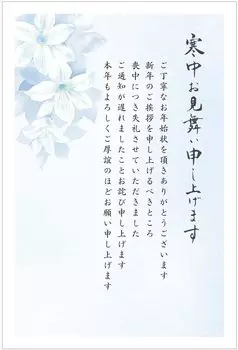 寒中お見舞い申し上げます
ご丁寧なお年始状を頂きありがとうございます
新年のご挨拶を申し上げるべきところ
喪中につき失礼させていただきました
ご通知が遅れましたことお詫び申し上げます
本年もよろしくご厚誼のほどお願い申し上げます